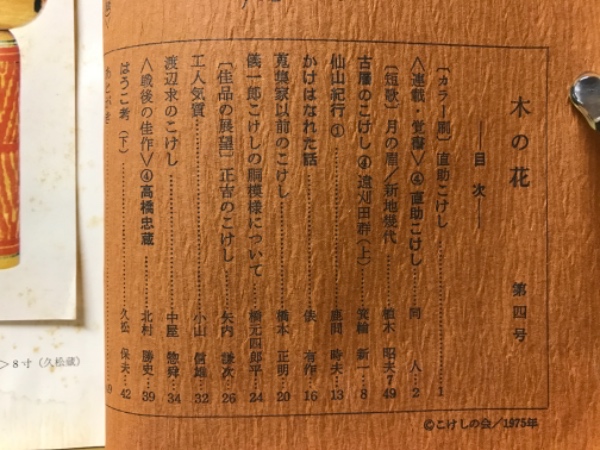 木の花
第四号
――目次――
〔カラー刷〕直助こけし……1
〈連載・覚書〉④直助こけし……同人…2
〔短歌〕月の眉／新地幾代……植木昭夫7 49
古層のこけし④遠刈田群(上)……箕輪新一…8
仙山紀行①……鹿間時夫…13
かけはなれた話……俵有作…16
蒐集家以前のこけし……橋本正明…20
儀一郎こけしの胴模様について……橋元四郎平…24
〔佳品の展望〕正吉のこけし……矢内謙次…26
工人気質……小山信雄…32
渡辺求のこけし……中屋惣舜…34
〈戦後の佳作〉④高橋忠蔵……北村勝史…39
はうこ考(下)……久松保夫…42
あとがき
©こけしの会／1975年
>8寸(久松蔵)